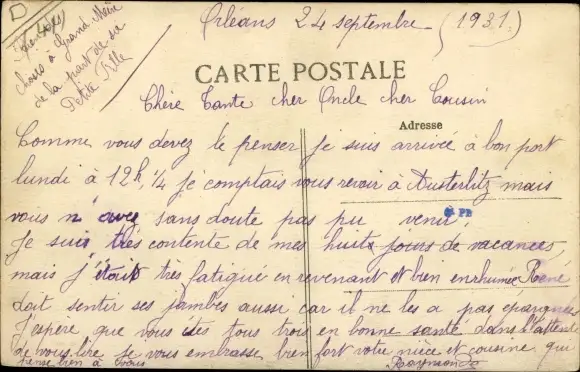 choses à Grand Mère
de la part de sa
Petite Fille
Orléans 24 septembre (1931)
CARTE POSTALE
Chère Tante cher Oncle cher Cousin
Adresse
Comme vous devez le penser je suis arrivée à bon port
lundi à 12h 1/4 je comptais vous revoir à Austerlitz mais
vous n'avez sans doute pas pu venir.
Je suis très contente de mes huit jours de vacances
mais j'étais très fatiguée en revenant et bien enrhumée René
doit sentir ses jambes aussi car il ne les a pas épargnées
J'espère que vous êtes tous trois en bonne santé dans l'attente
de vous lire je vous embrasse bien fort votre nièce et cousine qui
pense bien à vous
Raymonde